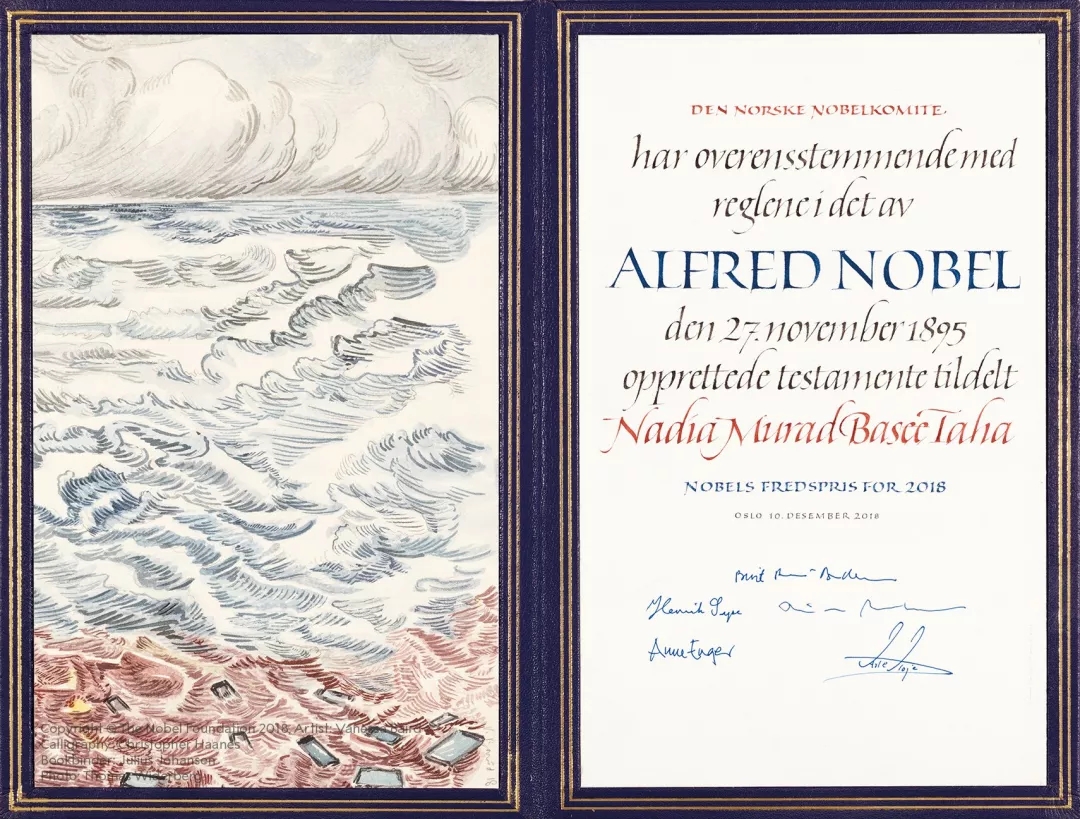 Copyright © The Nobel Foundation 2018. Artist: Vanessa Baird
Calligraphy: Christopher Haanes
Bookbinder: Julius Johansen
Photo: Thomas Widerberg
DEN NORSKE NOBELKOMITE
har overensstemmende med
reglene i det av
ALFRED NOBEL
den 27. november 1895
opprettede testamente tildelt
Nadia Murad Basee Taha
NOBELS FREDSPRIS FOR 2018
OSLO 10. DESEMBER 2018
Berit
Henrik Syse
Anne Enger
Asle Toje